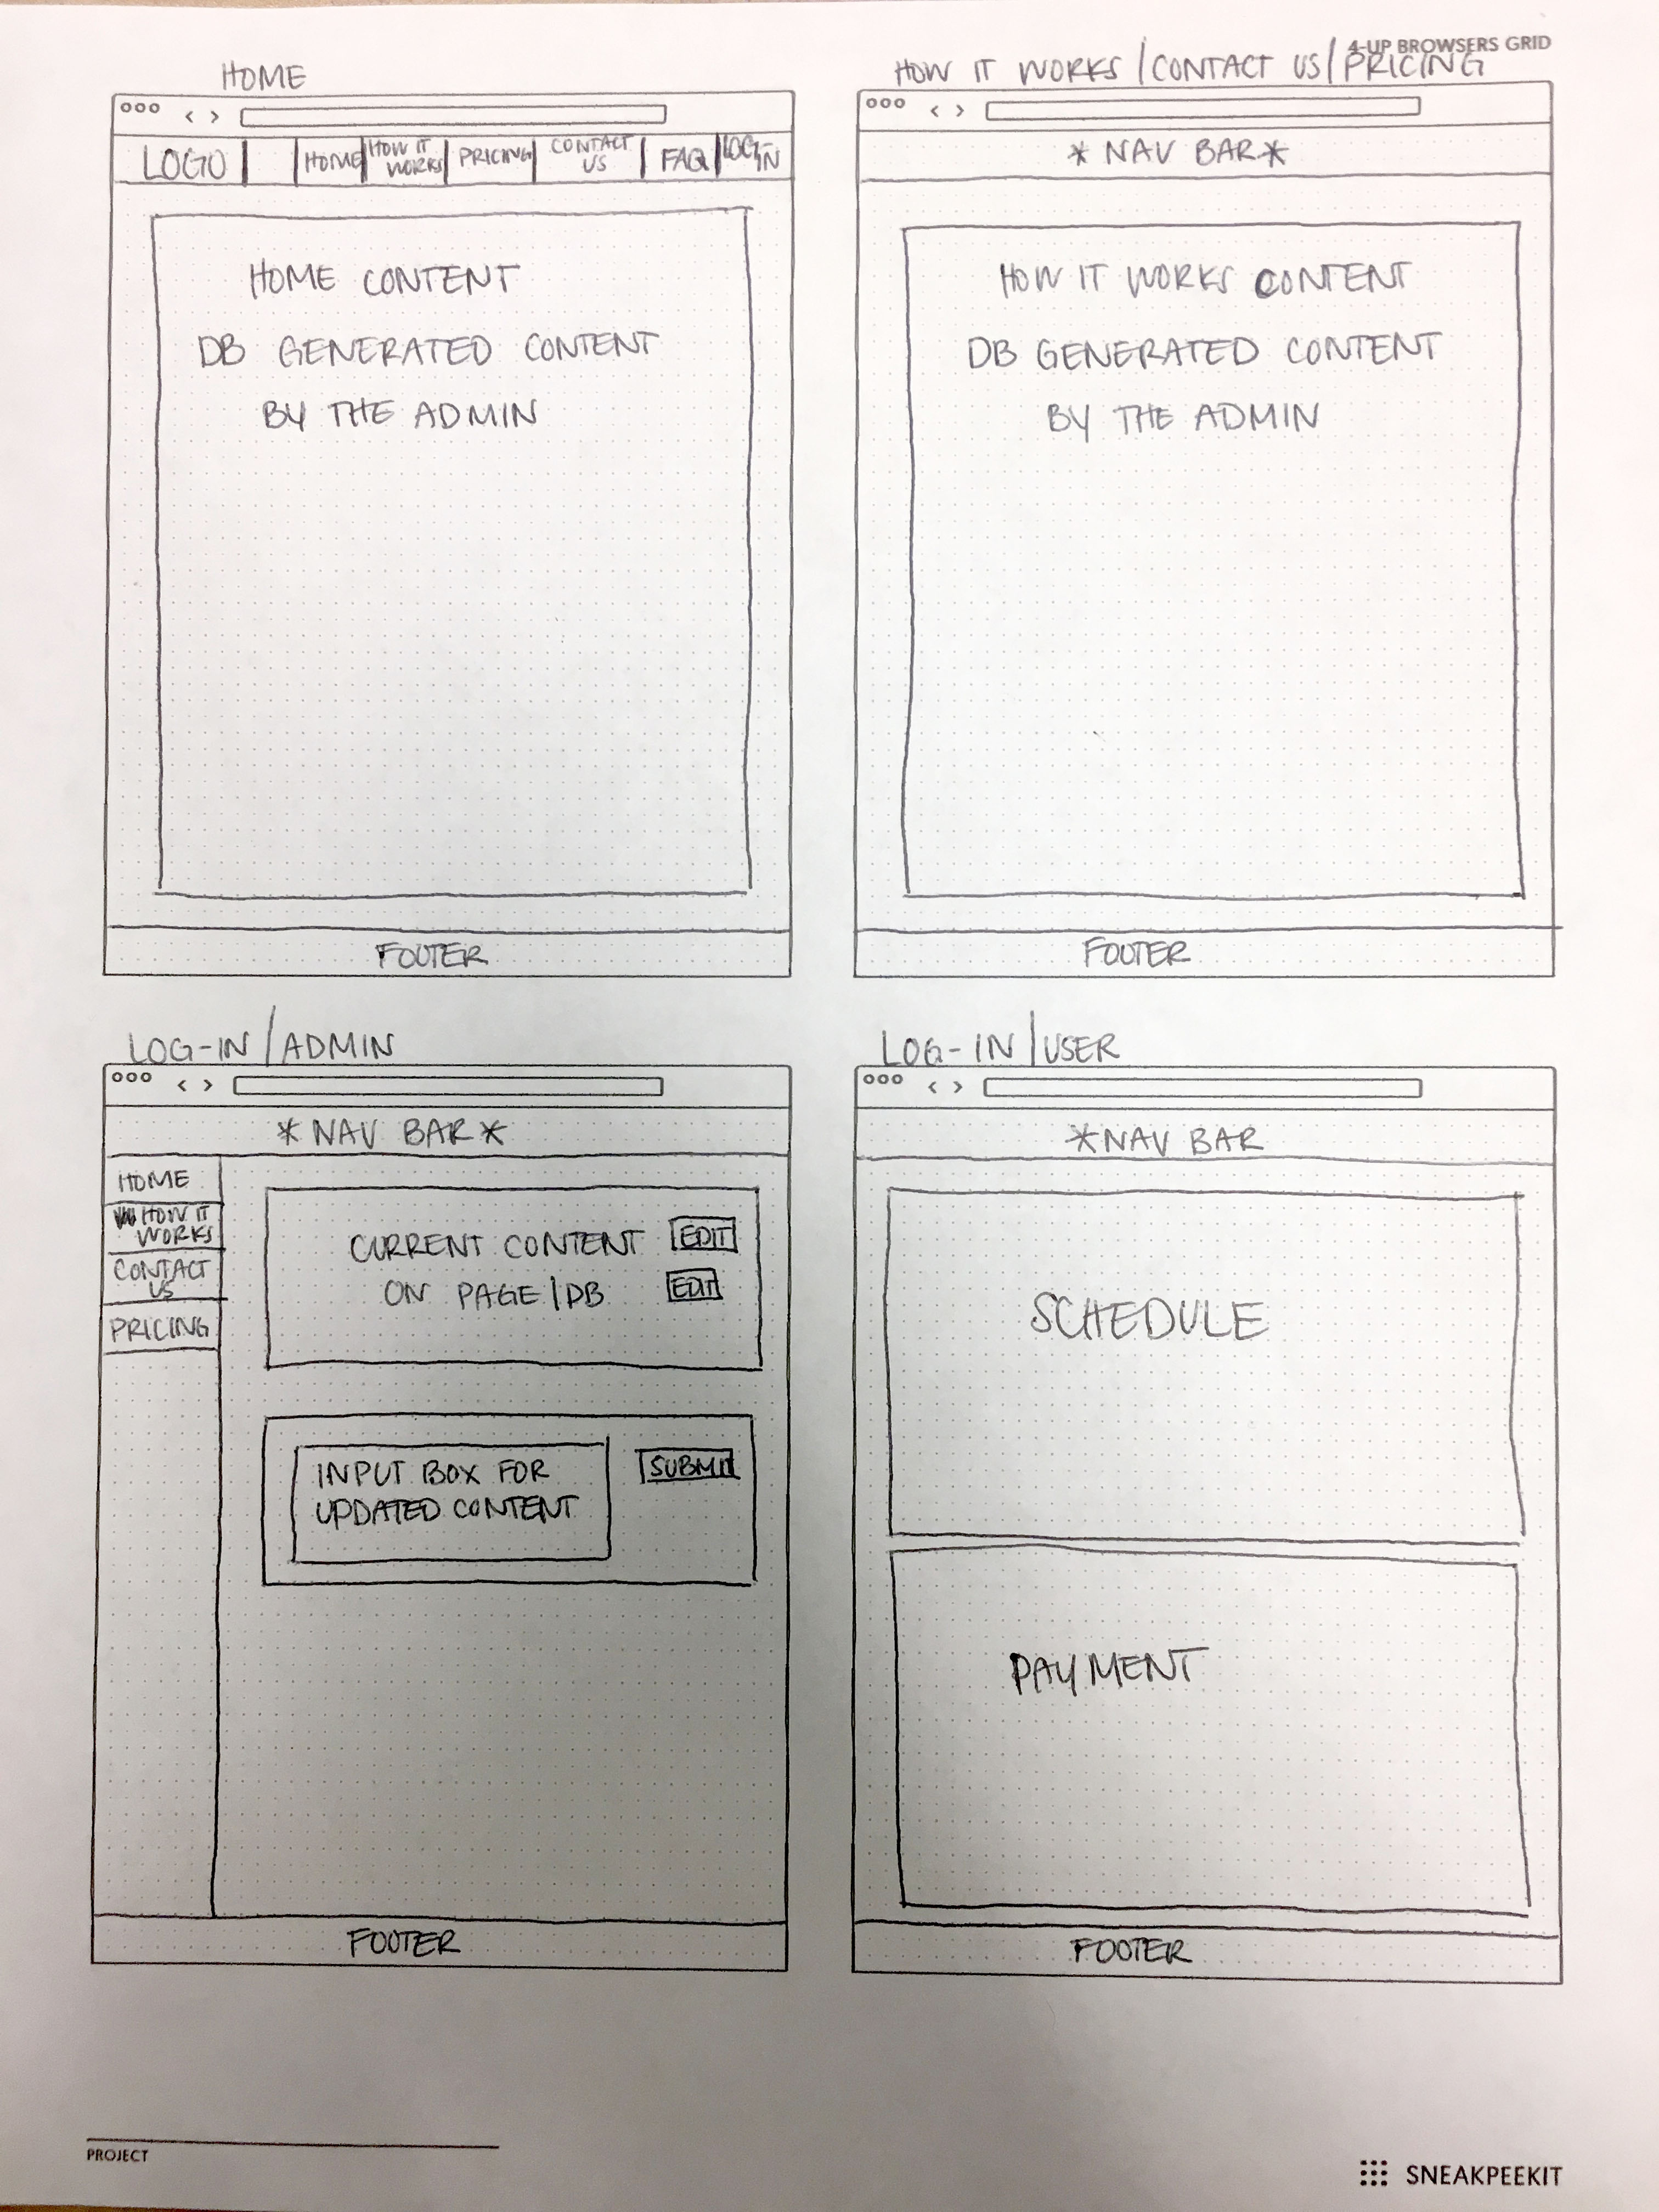 4-UP BROWSERS GRID
HOME
LOGO HOME HOW IT WORKS PRICING CONTACT US FAQ LOG-IN
HOME CONTENT
DB GENERATED CONTENT
BY THE ADMIN
FOOTER
HOW IT WORKS / CONTACT US / PRICING
*NAV BAR*
HOW IT WORKS CONTENT
DB GENERATED CONTENT
BY THE ADMIN
FOOTER
LOG-IN / ADMIN
*NAV BAR*
HOME
HOW IT
WORKS
CONTACT
US
PRICING
CURRENT CONTENT EDIT
ON PAGE/DB EDIT
INPUT BOX FOR SUBMIT
UPDATED CONTENT
FOOTER
LOG-IN / USER
*NAV BAR
SCHEDULE
PAYMENT
FOOTER
PROJECT
SNEAKPEEKIT